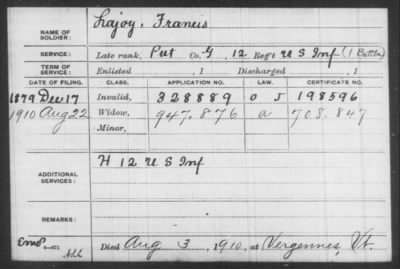 NAME OF SOLDIER: Lajoy, Francis
SERVICE: Late rank, Pvt Co. G, 12 Reg't U S Inf (1 Battn)
TERM OF SERVICE: Enlisted , 1 Discharged , 1
DATE OF FILING. CLASS. APPLICATION NO. LAW. CERTIFICATE NO.
1879 Dec 17 Invalid, 328889 198596
1910 Aug 22 Widow, 947.876 a 708.847
Minor,
ADDITIONAL SERVICES: H 12 U S Inf
REMARKS:
Died Aug 3, 1910, at Vergennes, Vt.